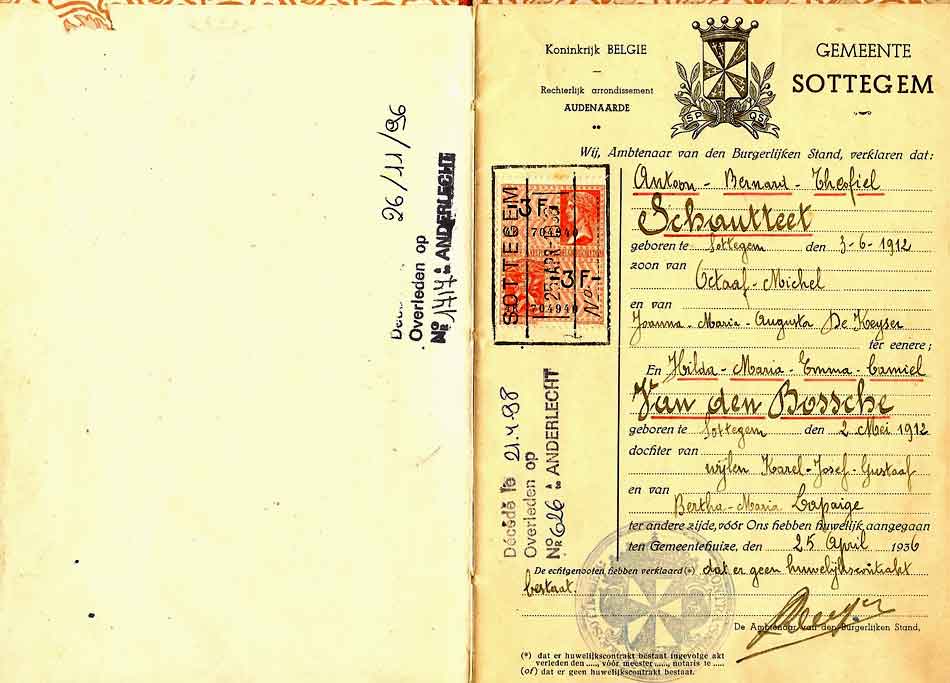 26/11/96
Overleden op
No 1717 à ANDERLECHT
Koninkrijk BELGIE
Rechterlijk arrondissement
AUDENAARDE
GEMEENTE
SOTTEGEM
SP QS
Wij, Ambtenaar van den Burgerlijken Stand, verklaren dat:
Antoon - Bernard - Theofiel
Schautteet
geboren te Sottegem den 3-6-1912
zoon van
Octaaf - Michel
en van
Joanna - Maria - Augusta De Keyser
ter eenere;
En Hilda - Maria - Emma - Camiel
Van den Bossche
geboren te Sottegem den 2 Mei 1912
dochter van
wijlen Karel - Josef - Gustaaf
en van
Bertha - Maria Lapaige
ter andere zijde, vóór Ons hebben huwelijk aangegaan
ten Gemeentehuize, den 25 April 1936
De echtgenooten hebben verklaard (*) dat er geen huwelijkscontrakt
bestaat.
De Ambtenaar van den Burgerlijken Stand,
(*) dat er huwelijkscontrakt bestaat ingevolge akt
verleden den ....., vóór meester ....., notaris te .....
(of) dat er geen huwelijkscontrakt bestaat.
SOTTEGEM
3F
704940
25 APR
3F
704940
No
Décédé le 21.4.98
Overleden op
No 626 à ANDERLECHT